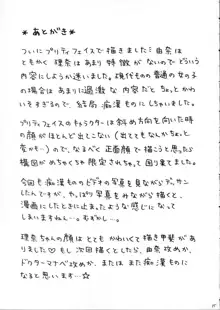 * あとがき *
ついにプリティフェイスで描きました!由奈は
ともかく 理奈はあまり特徴がないのでどういう
内容にしようか迷いました。現代ものの普通の女の子
の場合はあまり過激な内容だと ちょっとかわ
いそすぎるので、結局 痴漢ものにしちゃいました。
プリティフェイスのキャラクターは斜め方向を向いた時
の顔がほとんど出てこない(出ててもなんかちょっと
変かも)ので、なるべく正面顔で描こうと思ったら
構図がめちゃくちゃ限定されて困り果てました。
今回も痴漢もののビデオの写真を見ながらデッサンし
たんですが、やっぱり写真をみながら描くと、
漫画にしたときに止まったような感じになって
しまいますねん…。むずかし…。
理奈ちゃんの顔はとてもかわいくて描き甲斐があ
りました♡もし次回描くとしたら、由奈攻めか、
ドクターマナベ攻めか、または また痴漢ものに
なると思います…☆